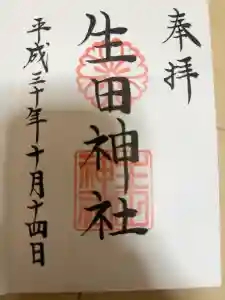 奉拝
生田神社
平成三十年十月十四日